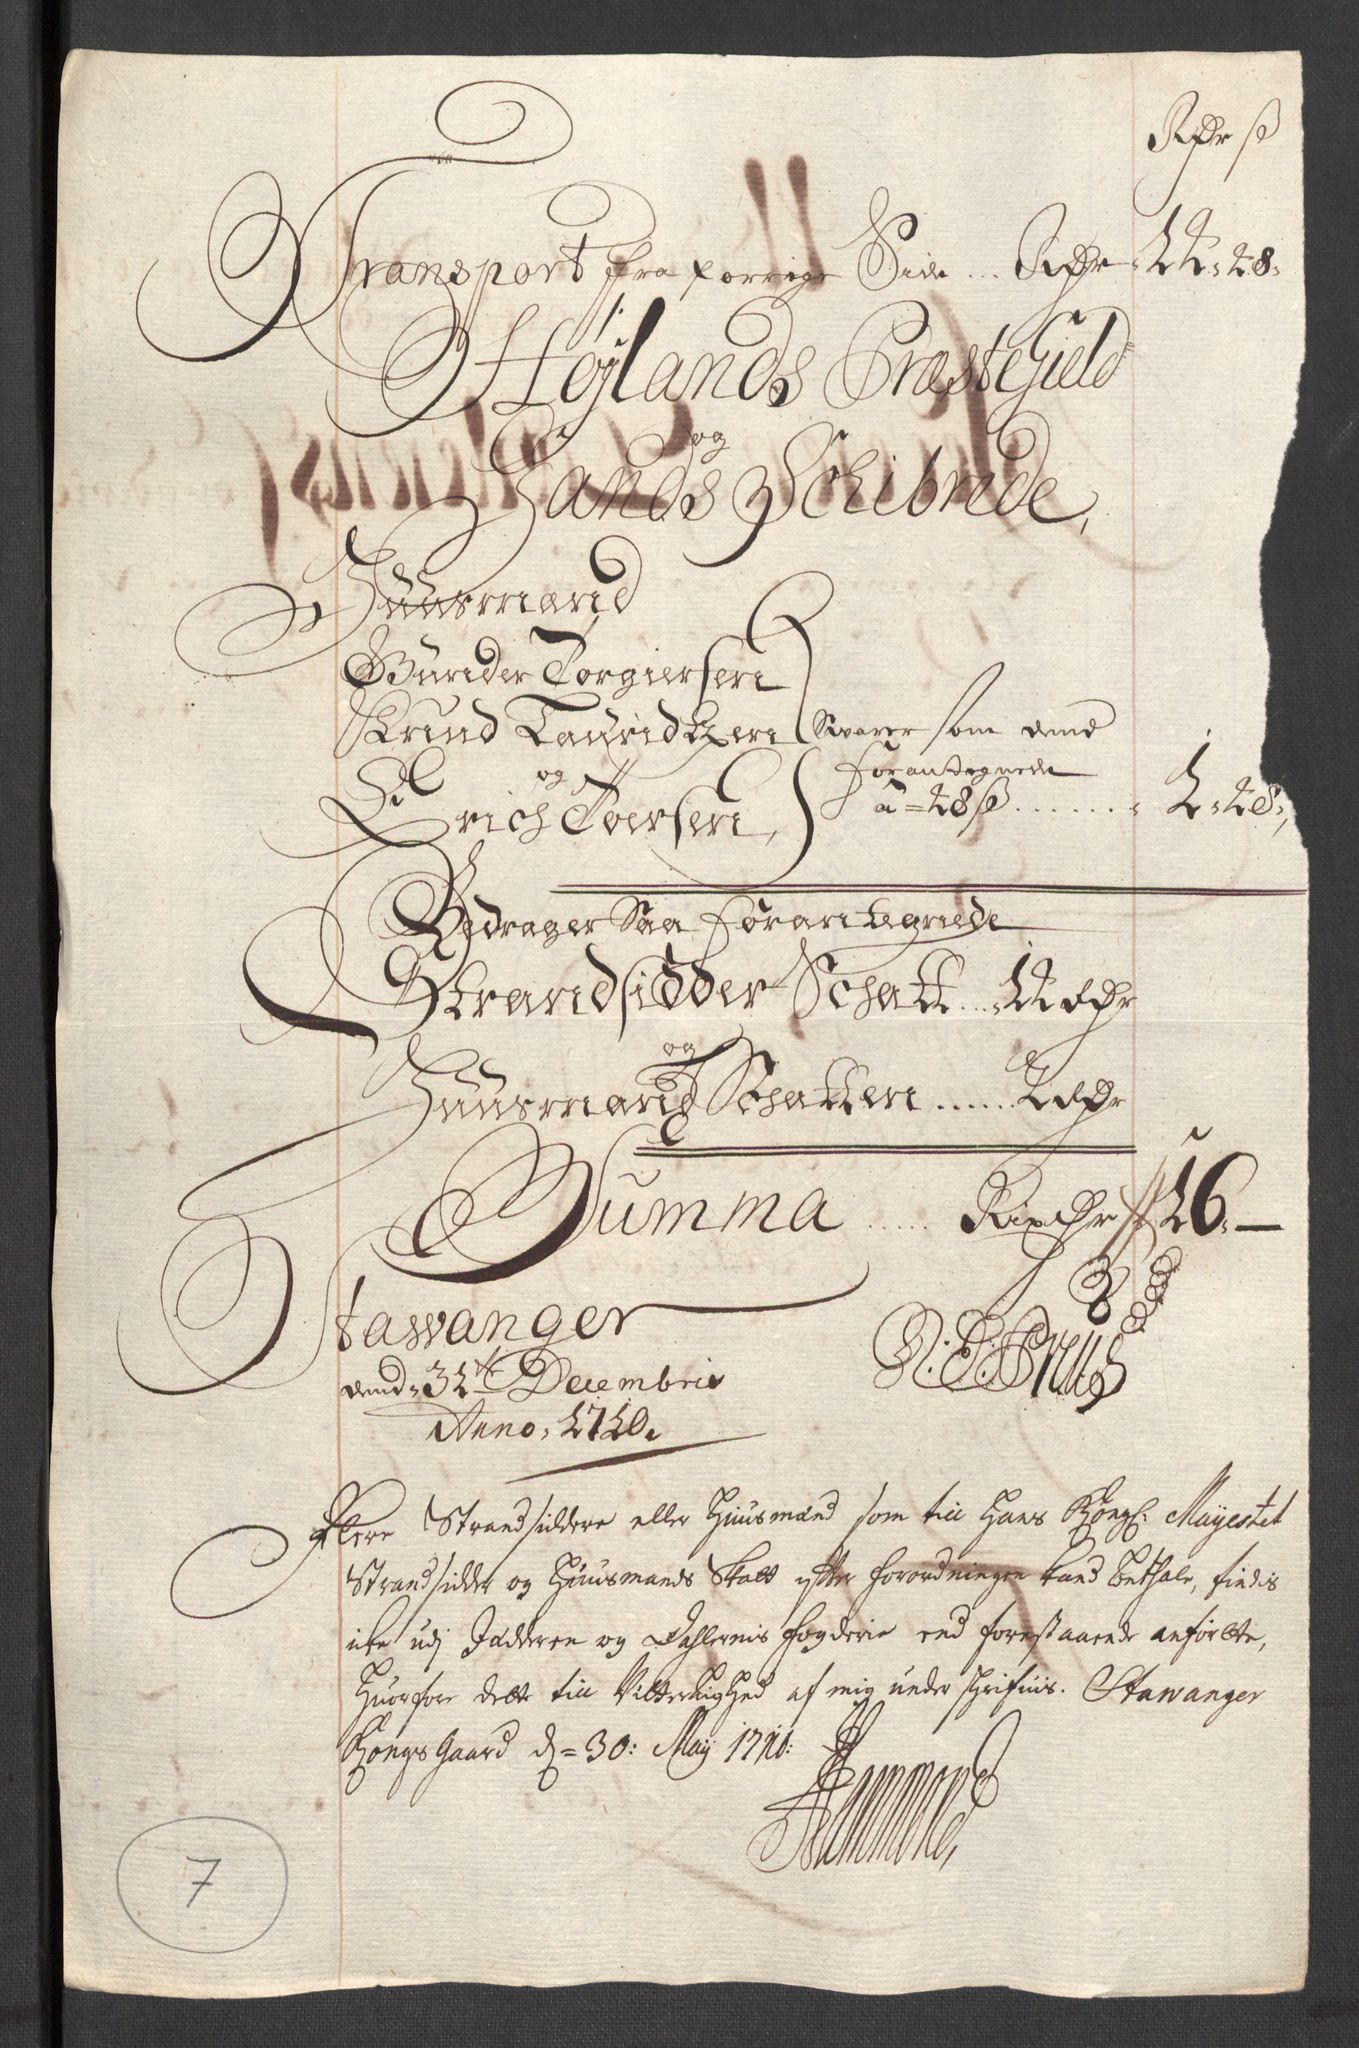 Rdr ß
Transport fra forrige Side ... Rdr 14 : 48 :
Højlands Præstegield
og
Sands Schibrede,
Huusmænd
Gunder Torgiersen
Knud Lauridtzen Svarer som dend
og forantegnede
Erich Tversen, a = 48 ß ...... 1 : 48 :
Bedrager Saa forantegnede
Strandsidder Schatt ... 12 Rdr
og
Huusmand Schatten ...... 4 Rdr
Summa ..... Rixdr 16 : —
Stawanger
dend 31te Decembris
Anno, 1710.
Flere Strandsiddere eller Huusmænd som till Hans Kongl: Mayestet
Strandsidder og Huusmands Skatt efter forordningen kand bethale, findis
iche udj Jædderen og Dahlernis fogderie end forestaaende anførtte,
Huorfore dette till Vitterlighed af mig underschrifuis. Stawanger
Kongsgaard d = 30: Maij
Hammond,
7